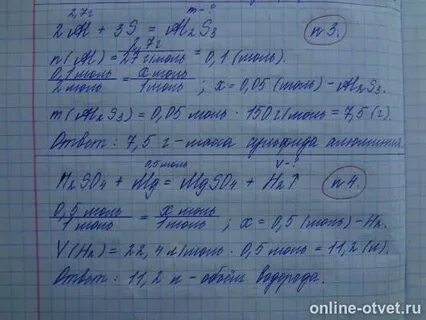 2,7г m-?
2Al + 3S = Al₂S₃ n3.
n(Al) = 2,7г / 27 г/моль = 0,1 (моль)
0,1 моль / 2 моль = x моль / 1 моль ; x = 0,05 (моль) - Al₂S₃.
m(Al₂S₃) = 0,05 моль · 150 г/моль = 7,5 (г).
Ответ: 7,5 г - масса сульфида алюминия
0,5 моль V-?
H₂SO₄ + Mg = MgSO₄ + H₂↑ n4.
0,5 моль / 1 моль = x моль / 1 моль ; x = 0,5 (моль) - H₂.
V(H₂) = 22,4 л/моль · 0,5 моль = 11,2 (л).
Ответ: 11,2 л - объём водорода.
online-otvet.ru